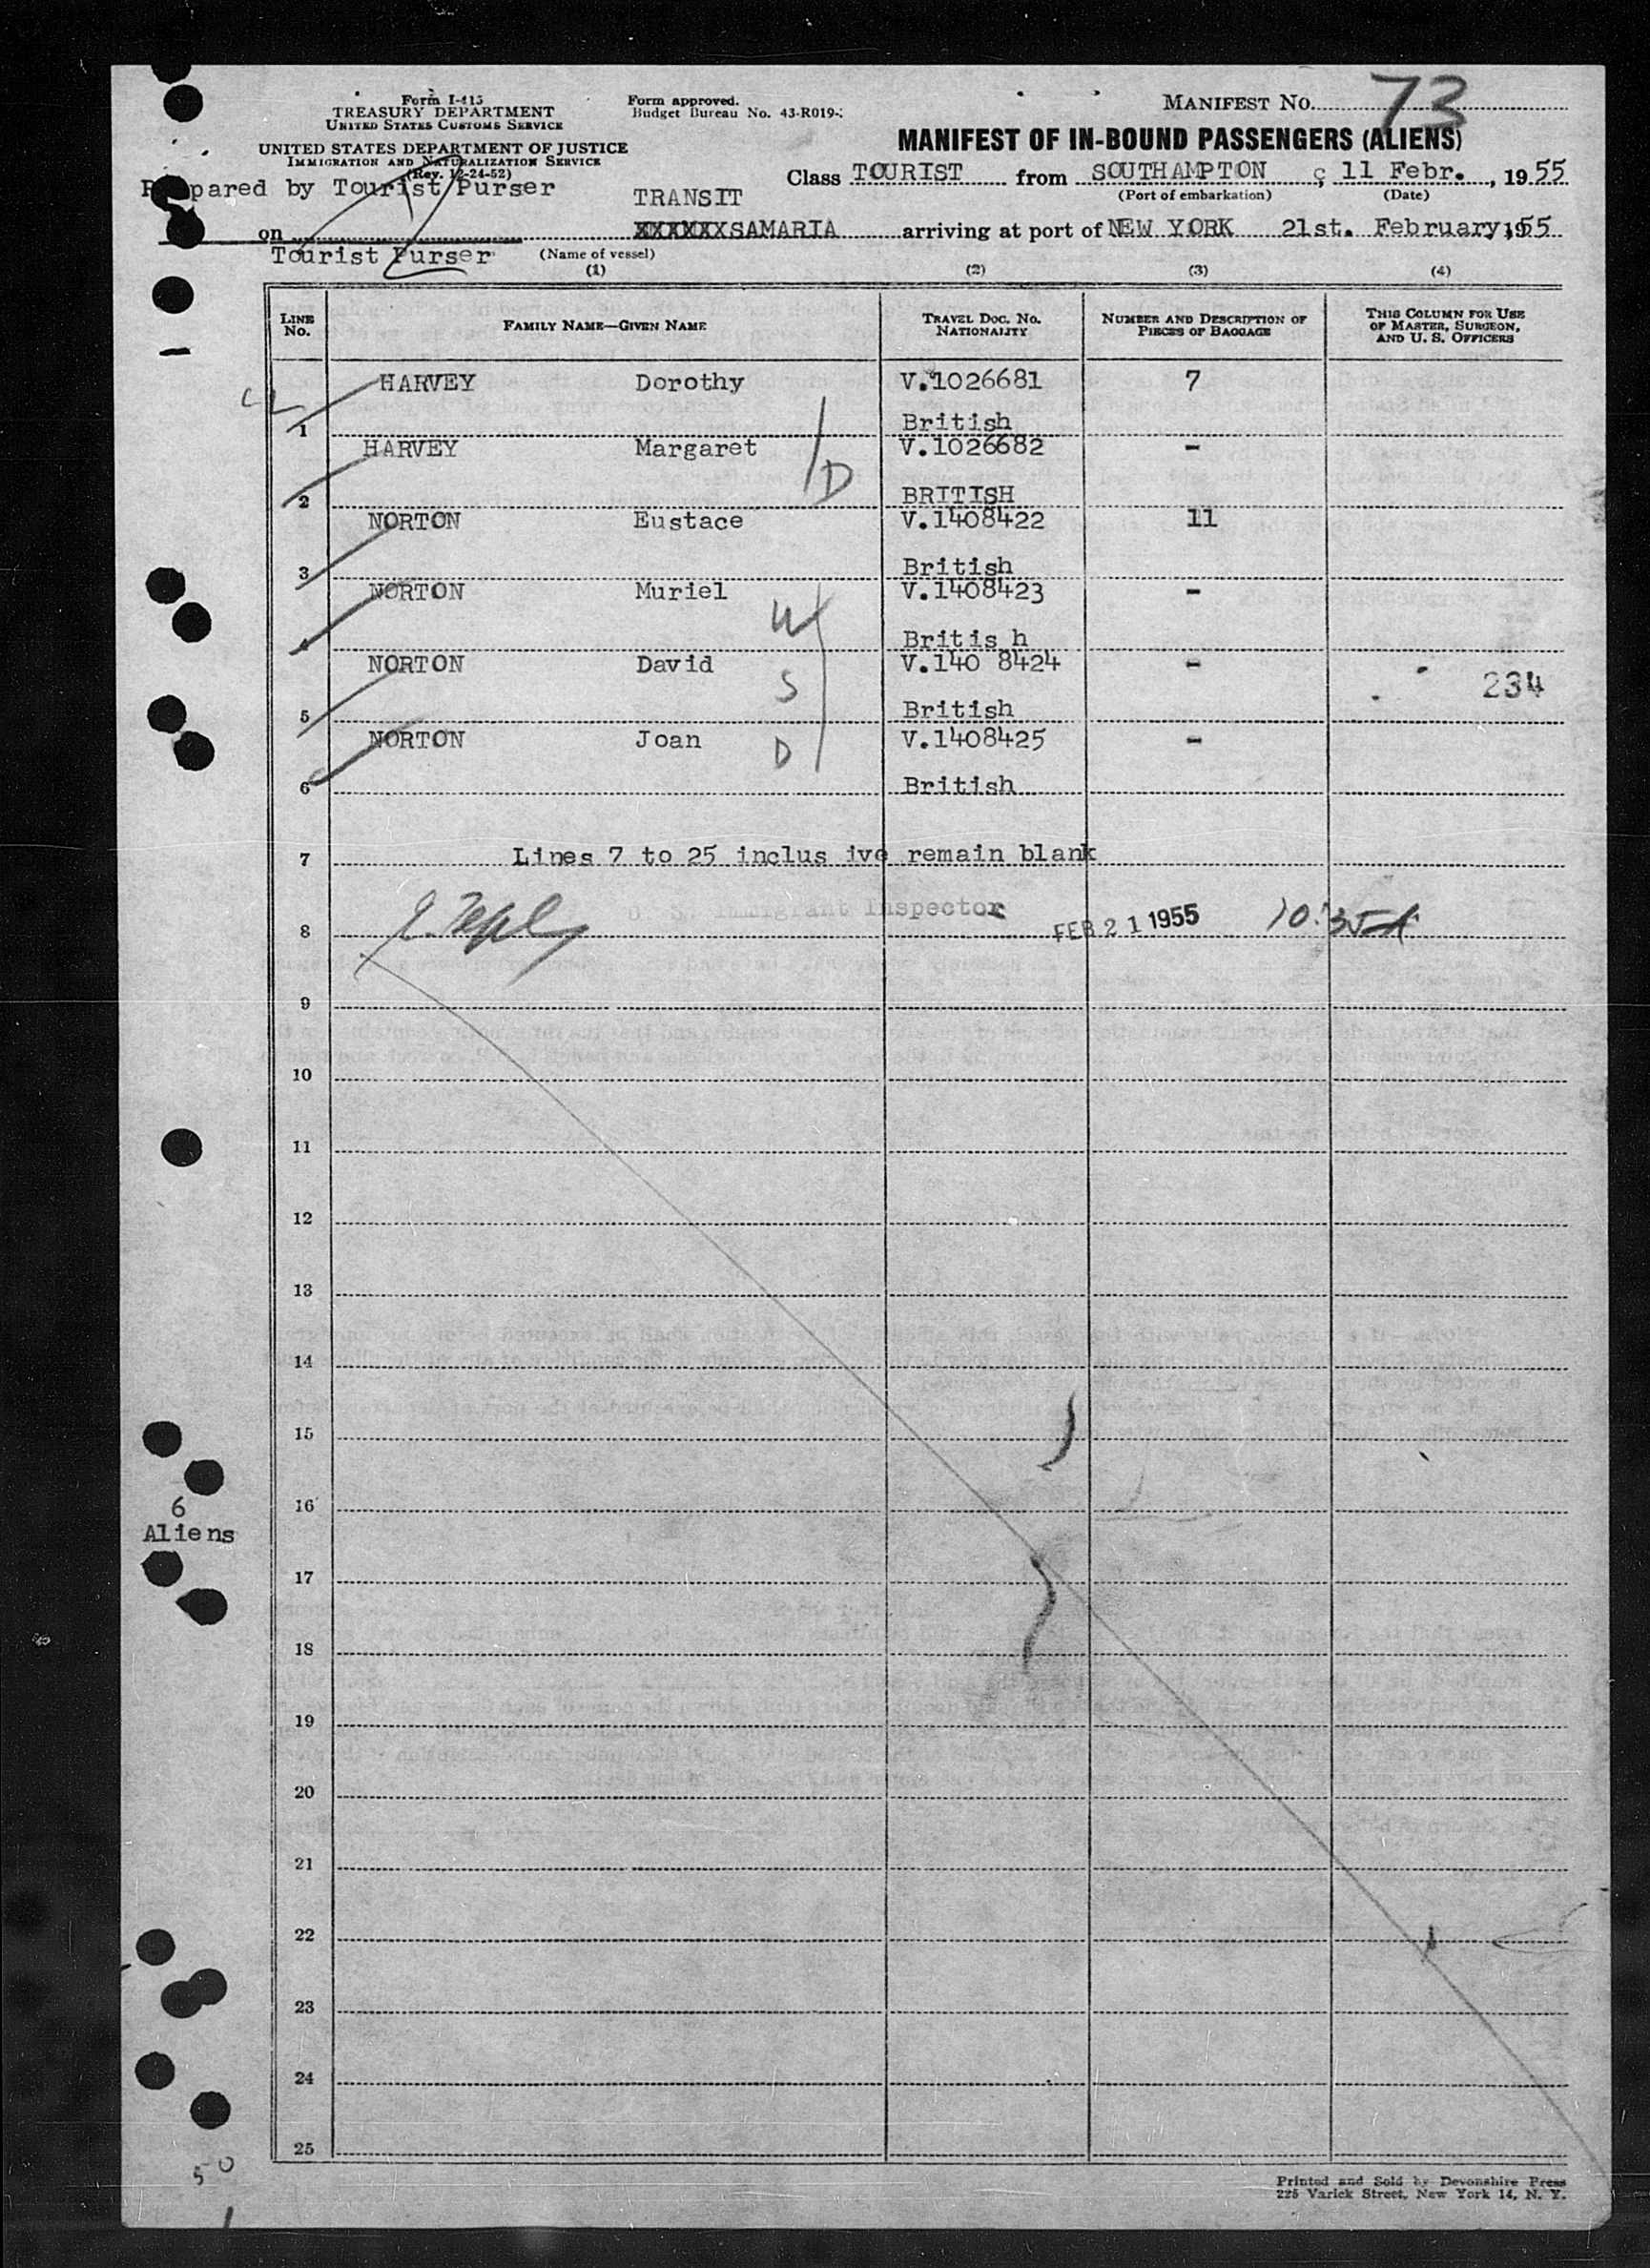 Form I-415
TREASURY DEPARTMENT
UNITED STATES CUSTOMS SERVICE
UNITED STATES DEPARTMENT OF JUSTICE
IMMIGRATION AND NATURALIZATION SERVICE
(Rev. 12-24-52)
Form approved.
Budget Bureau No. 43-R019-
MANIFEST NO. 73
MANIFEST OF IN-BOUND PASSENGERS (ALIENS)
Prepared by Tourist Purser
TRANSIT
Class TOURIST from SOUTHAMPTON 11 Febr., 1955
(Port of embarkation) (Date)
on XXXXXXSAMARIA arriving at port of NEW YORK 21st. February, 1955
Tourist Purser (Name of vessel)
(1) (2) (3) (4)
LINE No. FAMILY NAME—GIVEN NAME TRAVEL DOC. NO. NATIONALITY NUMBER AND DESCRIPTION OF PIECES OF BAGGAGE THIS COLUMN FOR USE OF MASTER, SURGEON, AND U. S. OFFICERS
HARVEY Dorothy V.1026681 7
1 British
HARVEY Margaret D V.1026682 -
2 BRITISH
NORTON Eustace V.1408422 11
3 British
NORTON Muriel W V.1408423 -
4 Britis h
NORTON David S V.140 8424 - 234
5 British
NORTON Joan D V.1408425 -
6 British
7 Lines 7 to 25 inclus ive remain blank
Immigrant Inspector
8 FEB 21 1955 10:35A
9
10
11
12
13
14
15
16
6
Aliens
17
18
19
20
21
22
23
24
25
50
Printed and Sold by Devonshire Press
225 Varick Street, New York 14, N. Y.